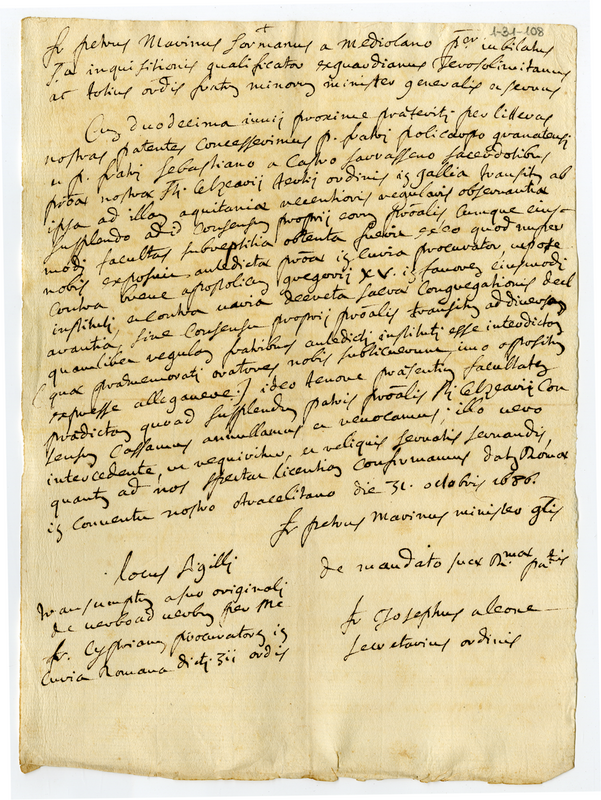 1-31-108
+
fr petrus Marinus Sormanus a Mediolano pter iubilatus
Sa inquisitionis qualificator exguardianus Jerosolimitanus
ac totius ordis fratrum minorum minister generalis a servus
Cum duodecima iunii proxime præteriti per litteras
nostras patentes concesserimus p. fratri policarpo gratianensi
p. fratri Sebastiano a Castro sarrasseno sacerdotibus
nostræ Sti Elzearij tertij ordinis in gallia transitum ab
ipsa ad illam aquitaniæ recentioris regularis observantiæ
supplendo ad id consensum proprij eorum proalis cumque eius-
modi facultas subreptitia obtenta fuerit ex eo quod nuper
nobis exposuit antedictæ proæ in curia procurator utpote
contra breve apostolicum gregorij XV. in favorem eiusmodi
instituti, et contra varia decreta sacræ Congregationis decl
arantia, sine consensu proprij proalis transitum ad diversam
quamlibet regulam fratribus antedicti instituti esse interdictum
(quæ præmemorati oratores nobis subticuerunt, imo oppositum
expresse allegarunt) ideo tenore præsentium facultatem
prædictam quoad supplendum patris proalis Sti Elzearij con
sensum cassamus annullamus et revocamus; illo vero
intercedente, ut requiritur, et reliquis servatis servandis,
quantum ad nos spectat licentiam confirmamus datum Romæ
in conventu nostro aracelitano die 31. octobris 1686.
fr petrus Marinus minister glis
locus sigilli
de mandato suæ Rmæ ptatis
transumptum a suo originali
de verbo ad verbum per me
fr. Cyprianum procuratorem in
curia Romana dicti 3ii ordis
fr Josephus a leone
secretarius ordinis